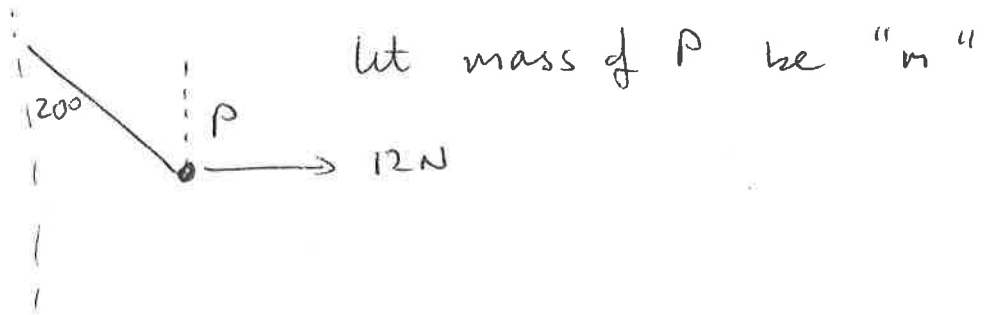 let mass of P be "m"
20°
P
12N